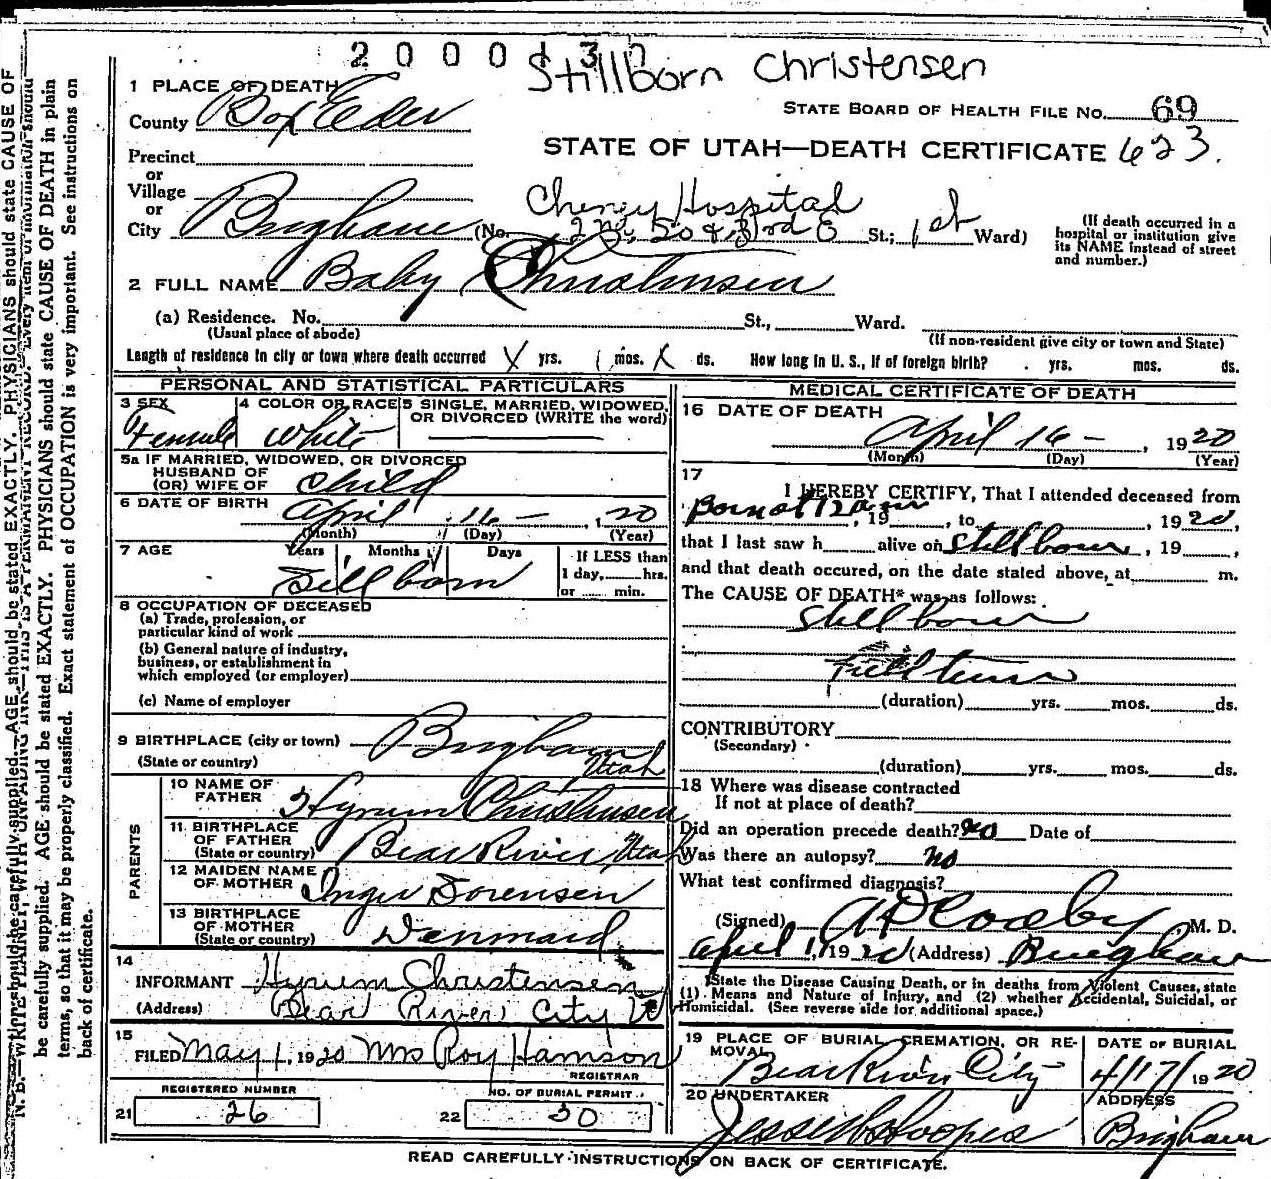 Stillborn Christensen
1 PLACE OF DEATH
County Box Elder
STATE BOARD OF HEALTH FILE NO. 69
STATE OF UTAH—DEATH CERTIFICATE 623.
Precinct
or
Village
or
City Brigham (No. Cheney Hospital
2nd So & 3rd E St.; 1st Ward)
(If death occurred in a
hospital or institution give
its NAME instead of street
and number.)
2 FULL NAME Baby Christensen
(a) Residence. No. St., Ward.
(Usual place of abode)
(If non-resident give city or town and State)
Length of residence in city or town where death occurred yrs. mos. ds. How long in U. S., if of foreign birth? yrs. mos. ds.
PERSONAL AND STATISTICAL PARTICULARS
3 SEX
Female
4 COLOR OR RACE
White
5 SINGLE, MARRIED, WIDOWED,
OR DIVORCED (WRITE the word)
5a IF MARRIED, WIDOWED, OR DIVORCED
HUSBAND OF
(OR) WIFE OF Child
6 DATE OF BIRTH
April 16 – , 1920
(Month) (Day) (Year)
7 AGE Years Months Days
If LESS than
1 day, hrs.
or min.
Stillborn
8 OCCUPATION OF DECEASED
(a) Trade, profession, or
particular kind of work
(b) General nature of industry,
business, or establishment in
which employed (or employer)
(c) Name of employer
9 BIRTHPLACE (city or town) Brigham
(State or country) Utah
PARENTS
10 NAME OF
FATHER Hyrum Christensen
11 BIRTHPLACE
OF FATHER
(State or country) Bear River Utah
12 MAIDEN NAME
OF MOTHER Inger Sorensen
13 BIRTHPLACE
OF MOTHER
(State or country) Denmark
14
INFORMANT Hyrum Christensen
(Address) Bear River City
15
FILED May 1, 1920 Mrs Roy Hamson
REGISTRAR
REGISTERED NUMBER
21 26
NO. OF BURIAL PERMIT
22 30
MEDICAL CERTIFICATE OF DEATH
16 DATE OF DEATH
April 16 – , 1920
(Month) (Day) (Year)
17
I HEREBY CERTIFY, That I attended deceased from
Born at , 19 , to , 1920,
that I last saw h alive on Stillborn , 19 ,
and that death occured, on the date stated above, at m.
The CAUSE OF DEATH* was as follows:
Stillborn
Full term
(duration) yrs. mos. ds.
CONTRIBUTORY
(Secondary)
(duration) yrs. mos. ds.
18 Where was disease contracted
If not at place of death?
Did an operation precede death? No Date of
Was there an autopsy? No
What test confirmed diagnosis?
(Signed) A D Cooley M. D.
April , 1920 (Address) Brigham
*State the Disease Causing Death, or in deaths from Violent Causes, state
(1) Means and Nature of Injury, and (2) whether Accidental, Suicidal, or
Homicidal. (See reverse side for additional space.)
19 PLACE OF BURIAL, CREMATION, OR RE-
MOVAL
Bear River City
DATE OF BURIAL
4/17/1920
20 UNDERTAKER
Jesse W Hoopes
ADDRESS
Brigham
READ CAREFULLY INSTRUCTIONS ON BACK OF CERTIFICATE.
be carefully supplied. AGE should be stated EXACTLY. PHYSICIANS should state CAUSE OF DEATH in plain
terms, so that it may be properly classified. Exact statement of OCCUPATION is very important. See instructions on
back of certificate.